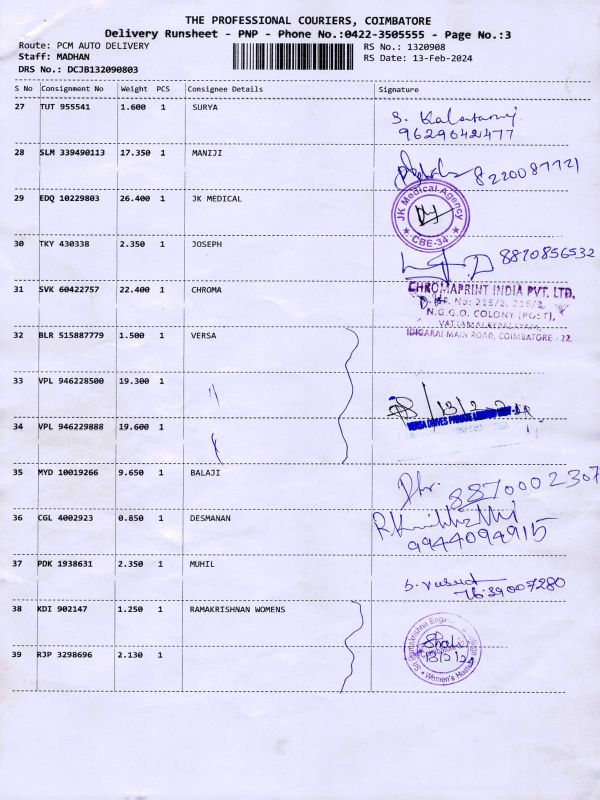 THE PROFESSIONAL COURIERS, COIMBATORE
Delivery Runsheet - PNP - Phone No.:0422-3505555 - Page No.:3
Route: PCM AUTO DELIVERY RS No.: 1320908
Staff: MADHAN RS Date: 13-Feb-2024
DRS No.: DCJB132090803
S No Consignment No Weight PCS Consignee Details Signature
27 TUT 955541 1.600 1 SURYA
9629642477
28 SLM 339490113 17.350 1 MANIJI
8220087721
29 EDQ 10229803 26.400 1 JK MEDICAL
JK Medical Agency
CBE-34
30 TKY 430338 2.350 1 JOSEPH
8870856532
31 SVK 60422757 22.400 1 CHROMA
CHROMAPRINT INDIA PVT. LTD.
No: 215/2,
N.G.G.O. COLONY (POST),
VATTAMALAIPALAYAM,
IDIGARAI MAIN ROAD, COIMBATORE - 22.
32 BLR 515887779 1.500 1 VERSA
33 VPL 946228500 19.300 1 "
13/2/24
VERSA DRIVES PRIVATE LIMITED
34 VPL 946229888 19.600 1 "
35 MYD 10019266 9.650 1 BALAJI
8870002307
36 CGL 4002923 0.850 1 DESMANAN
9944094915
37 PDK 1938631 2.350 1 MUHIL
7639007280
38 KDI 902147 1.250 1 RAMAKRISHNAN WOMENS
Sri Ramakrishna Engineering College
13/2/24
Women's Hostel
39 RJP 3298696 2.130 1